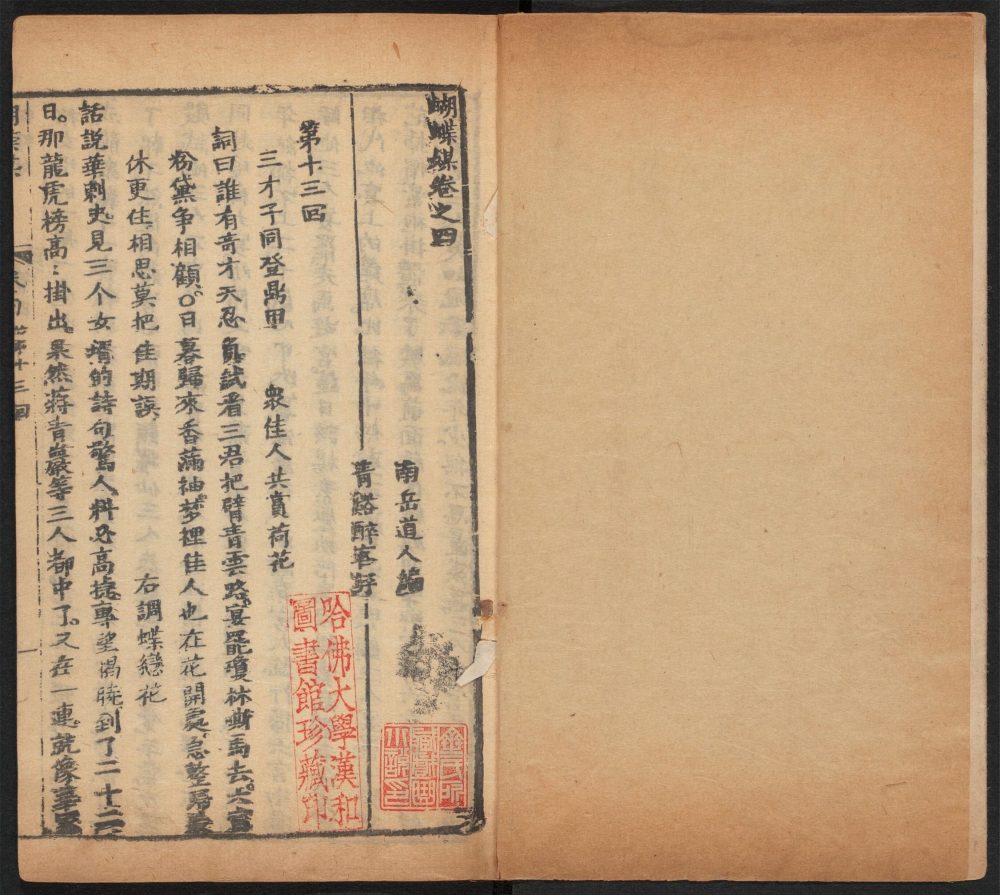 蝴蝶媒卷之四
南岳道人編
青谿醉客評
第十三回
三才子同登鼎甲 衆佳人共賞荷花
詞曰誰有奇才天忍負試看三君把臂青雲路宴罷瓊林嘶馬去六宮
粉黛争相顧○日暮歸來香滿袖梦裡佳人也在花開處急整歸
休更住相思莫把佳期誤 右調蝶戀花
話說華刺史見三个女壻的詩句驚人料必高捷專望揭曉到了二十二
日。那龍虎榜高：掛出果然蔣青巖等三人都中了。又在一連就像
第十三回
哈佛大學漢和
圖書館珍藏印